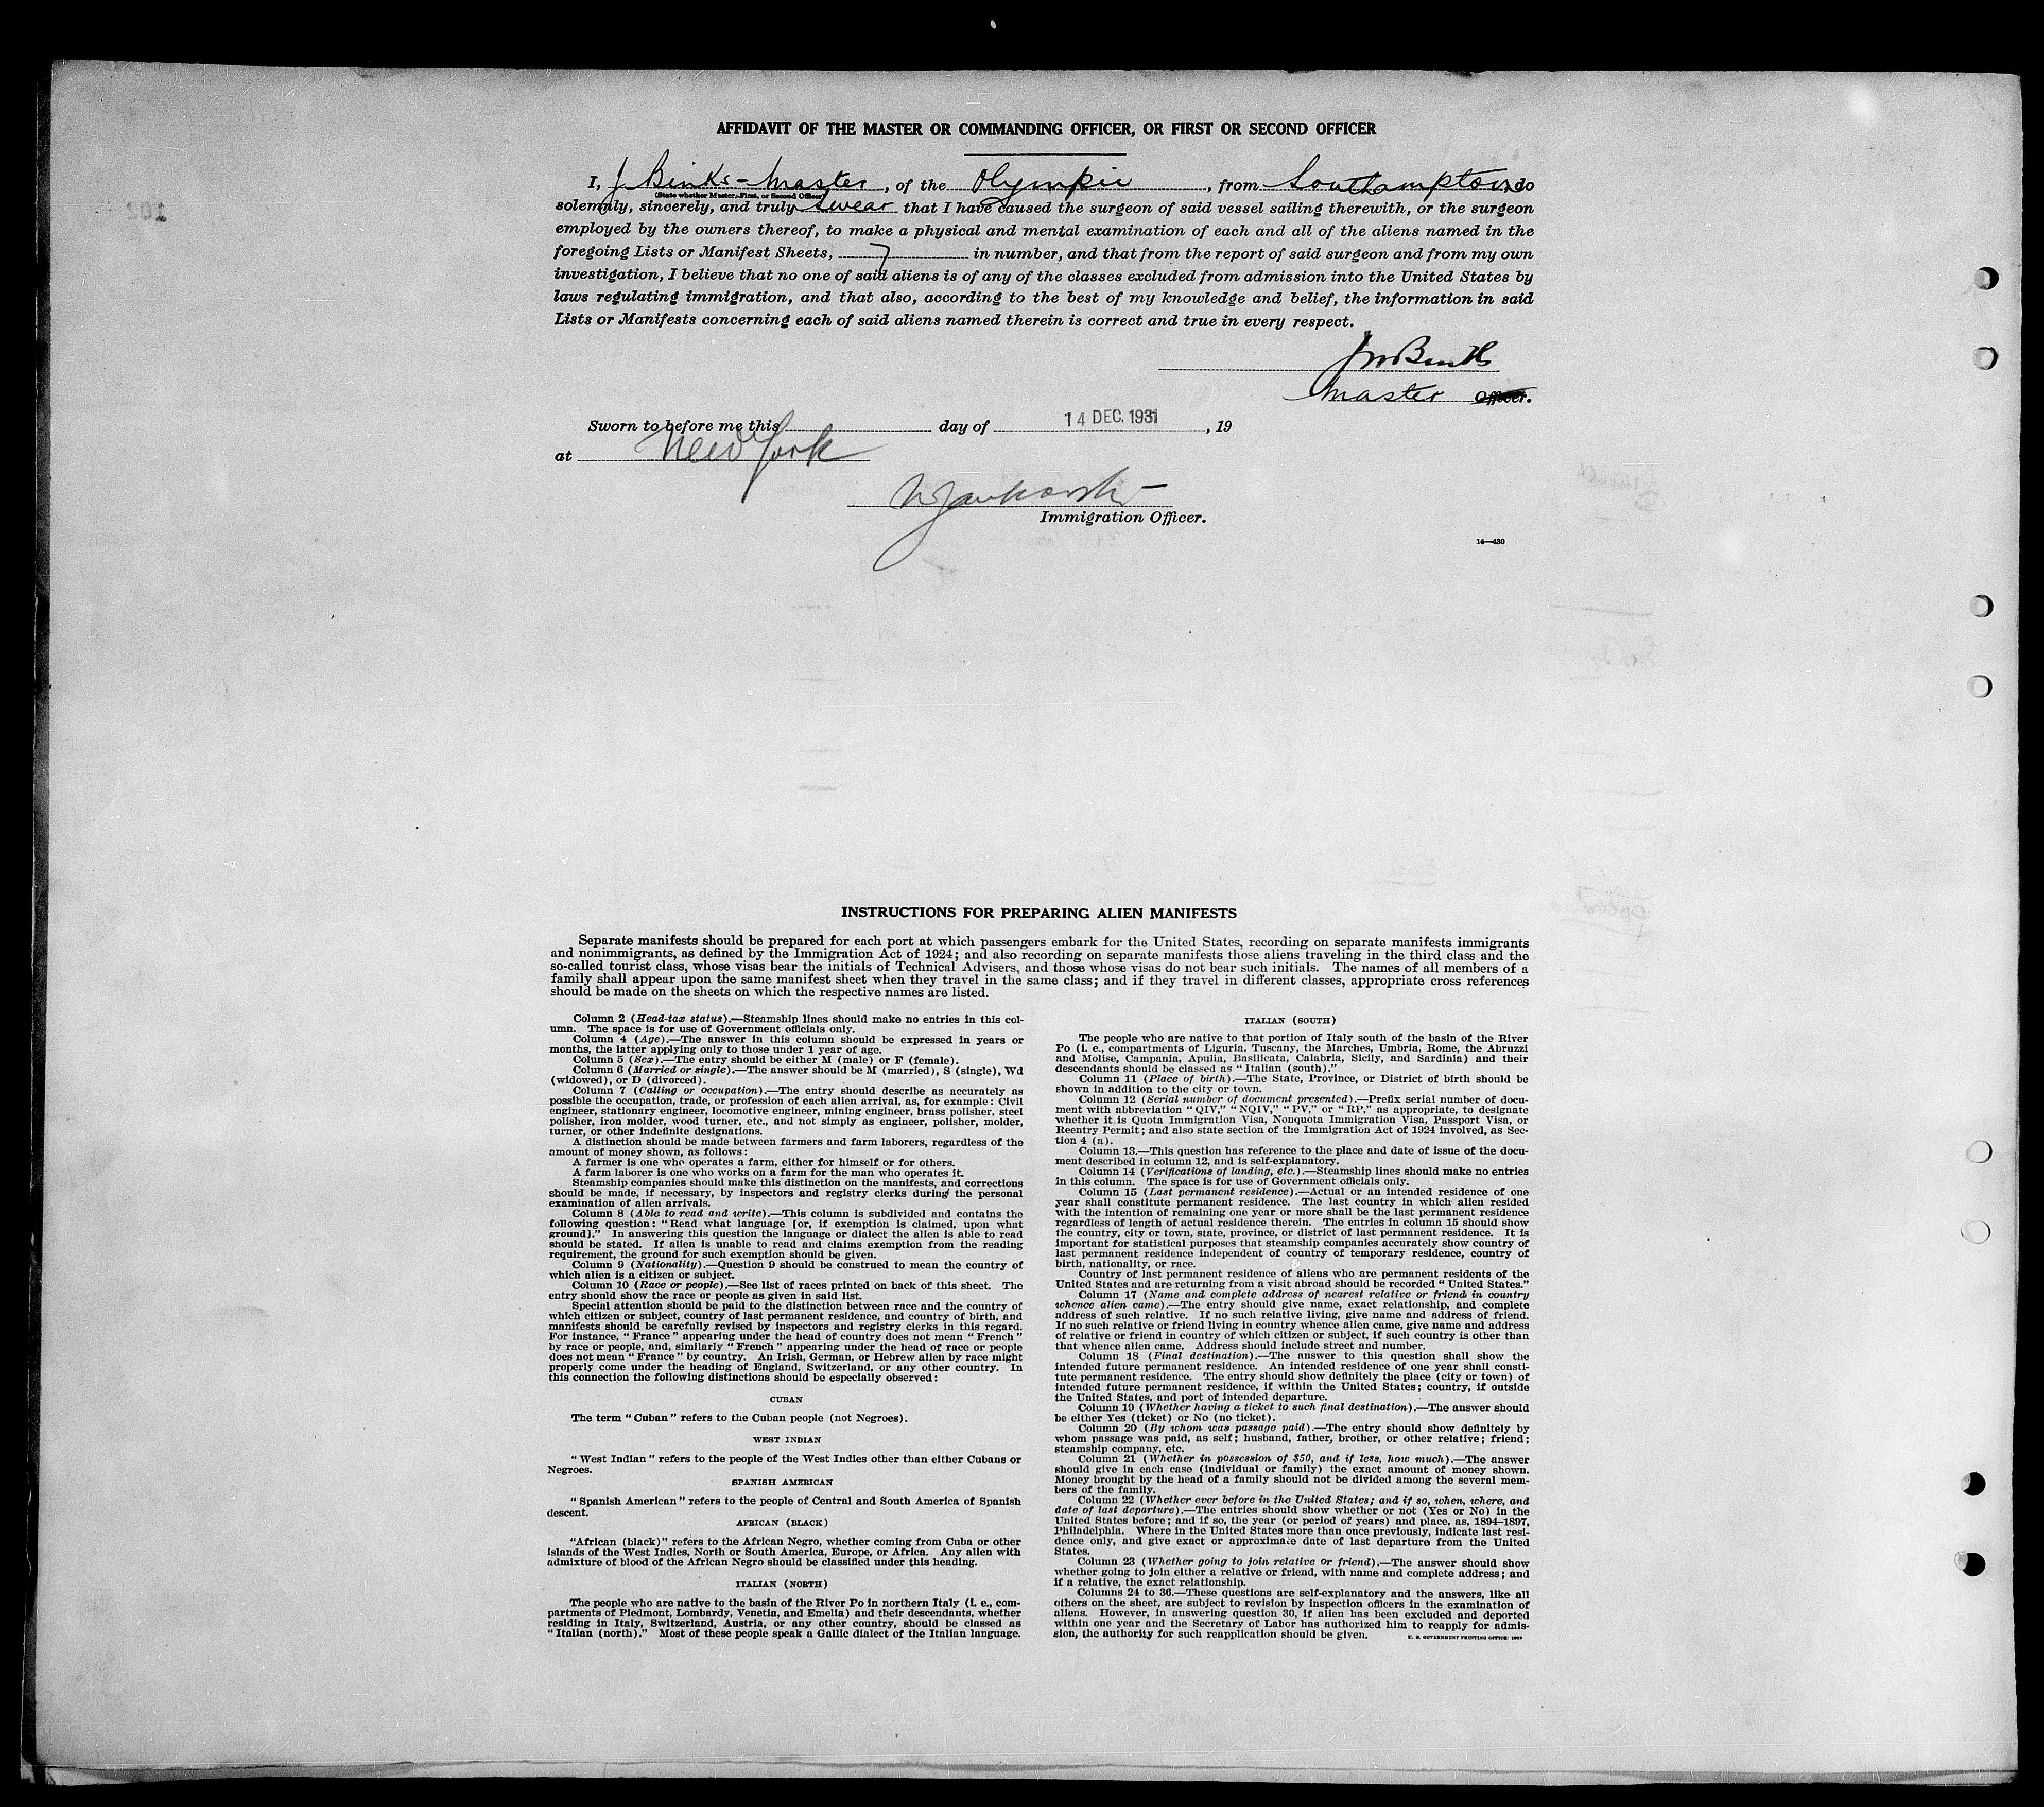 AFFIDAVIT OF THE MASTER OR COMMANDING OFFICER, OR FIRST OR SECOND OFFICER
I, J Binks - Master, of the Olympic, from Southampton, do
(State whether Master, First, or Second Officer)
solemnly, sincerely, and truly swear that I have caused the surgeon of said vessel sailing therewith, or the surgeon
employed by the owners thereof, to make a physical and mental examination of each and all of the aliens named in the
foregoing Lists or Manifest Sheets, 7 in number, and that from the report of said surgeon and from my own
investigation, I believe that no one of said aliens is of any of the classes excluded from admission into the United States by
laws regulating immigration, and that also, according to the best of my knowledge and belief, the information in said
Lists or Manifests concerning each of said aliens named therein is correct and true in every respect.
JW Binks
Master Officer.
Sworn to before me this day of 14 DEC. 1931, 19
at New York
Immigration Officer.
14—430
102
INSTRUCTIONS FOR PREPARING ALIEN MANIFESTS
Separate manifests should be prepared for each port at which passengers embark for the United States, recording on separate manifests immigrants
and nonimmigrants, as defined by the Immigration Act of 1924; and also recording on separate manifests those aliens traveling in the third class and the
so-called tourist class, whose visas bear the initials of Technical Advisers, and those whose visas do not bear such initials. The names of all members of a
family shall appear upon the same manifest sheet when they travel in the same class; and if they travel in different classes, appropriate cross references
should be made on the sheets on which the respective names are listed.
Column 2 (Head-tax status).—Steamship lines should make no entries in this col-
umn. The space is for use of Government officials only.
Column 4 (Age).—The answer in this column should be expressed in years or
months, the latter applying only to those under 1 year of age.
Column 5 (Sex).—The entry should be either M (male) or F (female).
Column 6 (Married or single).—The answer should be M (married), S (single), Wd
(widowed), or D (divorced).
Column 7 (Calling or occupation).—The entry should describe as accurately as
possible the occupation, trade, or profession of each alien arrival, as, for example: Civil
engineer, stationary engineer, locomotive engineer, mining engineer, brass polisher, steel
polisher, iron molder, wood turner, etc., and not simply as engineer, polisher, molder,
turner, or other indefinite designations.
A distinction should be made between farmers and farm laborers, regardless of the
amount of money shown, as follows:
A farmer is one who operates a farm, either for himself or for others.
A farm laborer is one who works on a farm for the man who operates it.
Steamship companies should make this distinction on the manifests, and corrections
should be made, if necessary, by inspectors and registry clerks during the personal
examination of alien arrivals.
Column 8 (Able to read and write).—This column is subdivided and contains the
following question: "Read what language [or, if exemption is claimed, upon what
ground]." In answering this question the language or dialect the alien is able to read
should be stated. If alien is unable to read and claims exemption from the reading
requirement, the ground for such exemption should be given.
Column 9 (Nationality).—Question 9 should be construed to mean the country of
which alien is a citizen or subject.
Column 10 (Race or people).—See list of races printed on back of this sheet. The
entry should show the race or people as given in said list.
Special attention should be paid to the distinction between race and the country of
which citizen or subject, country of last permanent residence, and country of birth, and
manifests should be carefully revised by inspectors and registry clerks in this regard.
For instance, "France" appearing under the head of country does not mean "French"
by race or people, and, similarly "French" appearing under the head of race or people
does not mean "France" by country. An Irish, German, or Hebrew alien by race might
properly come under the heading of England, Switzerland, or any other country. In
this connection the following distinctions should be especially observed:
CUBAN
The term "Cuban" refers to the Cuban people (not Negroes).
WEST INDIAN
"West Indian" refers to the people of the West Indies other than either Cubans or
Negroes.
SPANISH AMERICAN
"Spanish American" refers to the people of Central and South America of Spanish
descent.
AFRICAN (BLACK)
"African (black)" refers to the African Negro, whether coming from Cuba or other
islands of the West Indies, North or South America, Europe, or Africa. Any alien with
admixture of blood of the African Negro should be classified under this heading.
ITALIAN (NORTH)
The people who are native to the basin of the River Po in northern Italy (i. e., com-
partments of Piedmont, Lombardy, Venetia, and Emelia) and their descendants, whether
residing in Italy, Switzerland, Austria, or any other country, should be classed as
"Italian (north)." Most of these people speak a Gallic dialect of the Italian language.
ITALIAN (SOUTH)
The people who are native to that portion of Italy south of the basin of the River
Po (i. e., compartments of Liguria, Tuscany, the Marches, Umbria, Rome, the Abruzzi
and Molise, Campania, Apulia, Basilicata, Calabria, Sicily, and Sardinia) and their
descendants should be classed as "Italian (south)."
Column 11 (Place of birth).—The State, Province, or District of birth should be
shown in addition to the city or town.
Column 12 (Serial number of document presented).—Prefix serial number of docu-
ment with abbreviation "QIV," "NQIV," "PV," or "RP," as appropriate, to designate
whether it is Quota Immigration Visa, Nonquota Immigration Visa, Passport Visa, or
Reentry Permit; and also state section of the Immigration Act of 1924 involved, as Sec-
tion 4 (a).
Column 13.—This question has reference to the place and date of issue of the docu-
ment described in column 12, and is self-explanatory.
Column 14 (Verifications of landing, etc.).—Steamship lines should make no entries
in this column. The space is for use of Government officials only.
Column 15 (Last permanent residence).—Actual or an intended residence of one
year shall constitute permanent residence. The last country in which alien resided
with the intention of remaining one year or more shall be the last permanent residence
regardless of length of actual residence therein. The entries in column 15 should show
the country, city or town, state, province, or district of last permanent residence. It is
important for statistical purposes that steamship companies accurately show country of
last permanent residence independent of country of temporary residence, country of
birth, nationality, or race.
Country of last permanent residence of aliens who are permanent residents of the
United States and are returning from a visit abroad should be recorded "United States."
Column 17 (Name and complete address of nearest relative or friend in country
whence alien came).—The entry should give name, exact relationship, and complete
address of such relative. If no such relative living, give name and address of friend.
If no such relative or friend living in country whence alien came, give name and address
of relative or friend in country of which citizen or subject, if such country is other than
that whence alien came. Address should include street and number.
Column 18 (Final destination).—The answer to this question shall show the
intended future permanent residence. An intended residence of one year shall consti-
tute permanent residence. The entry should show definitely the place (city or town) of
intended future permanent residence, if within the United States; country, if outside
the United States, and port of intended departure.
Column 19 (Whether having a ticket to such final destination).—The answer should
be either Yes (ticket) or No (no ticket).
Column 20 (By whom was passage paid).—The entry should show definitely by
whom passage was paid, as self; husband, father, brother, or other relative; friend;
steamship company, etc.
Column 21 (Whether in possession of $50, and if less, how much).—The answer
should give in each case (individual or family) the exact amount of money shown.
Money brought by the head of a family should not be divided among the several mem-
bers of the family.
Column 22 (Whether ever before in the United States; and if so, when, where, and
date of last departure).—The entries should show whether or not (Yes or No) in the
United States before; and if so, the year (or period of years) and place, as, 1894–1897,
Philadelphia. Where in the United States more than once previously, indicate last resi-
dence only, and give exact or approximate date of last departure from the United
States.
Column 23 (Whether going to join relative or friend).—The answer should show
whether going to join either a relative or friend, with name and complete address; and
if a relative, the exact relationship.
Columns 24 to 36.—These questions are self-explanatory and the answers, like all
others on the sheet, are subject to revision by inspection officers in the examination of
aliens. However, in answering question 30, if alien has been excluded and deported
within one year and the Secretary of Labor has authorized him to reapply for admis-
sion, the authority for such reapplication should be given.
U. S. GOVERNMENT PRINTING OFFICE: